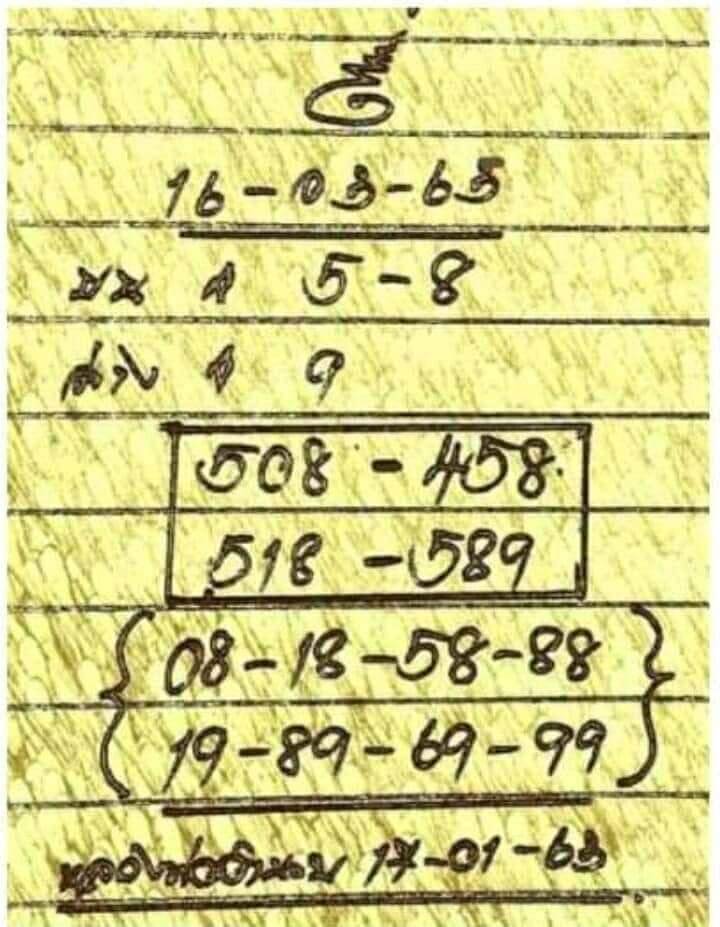 16-03-65
บน 4 5-8
ล่าง 4 9
508 - 458
518 - 589
08-18-58-88
19-89-69-99
17-01-63